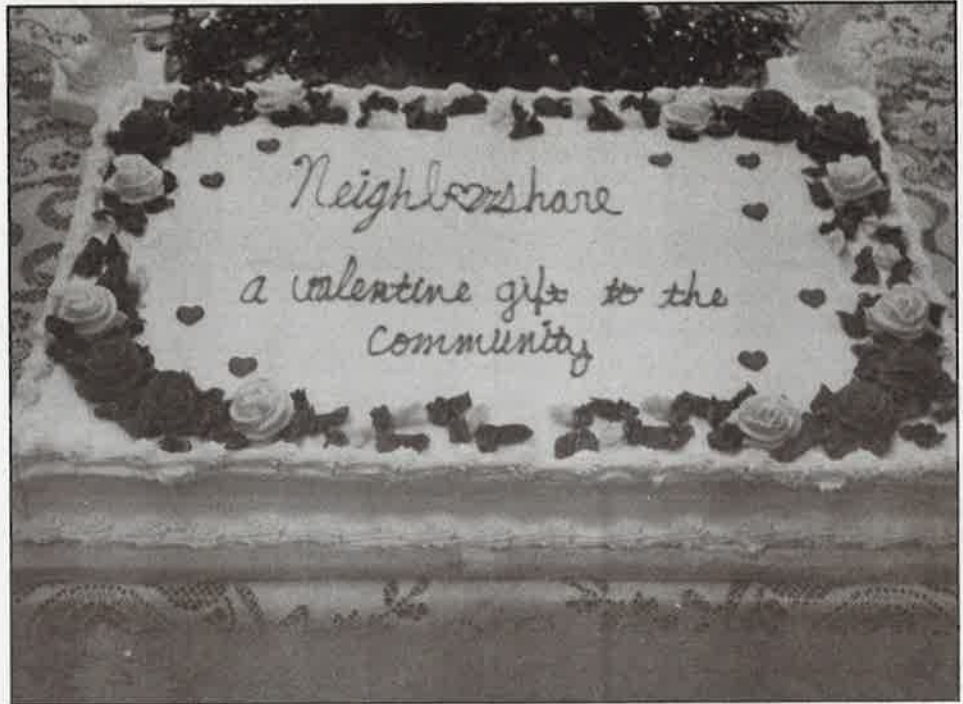 Neighborshare
a valentine gift to the
community